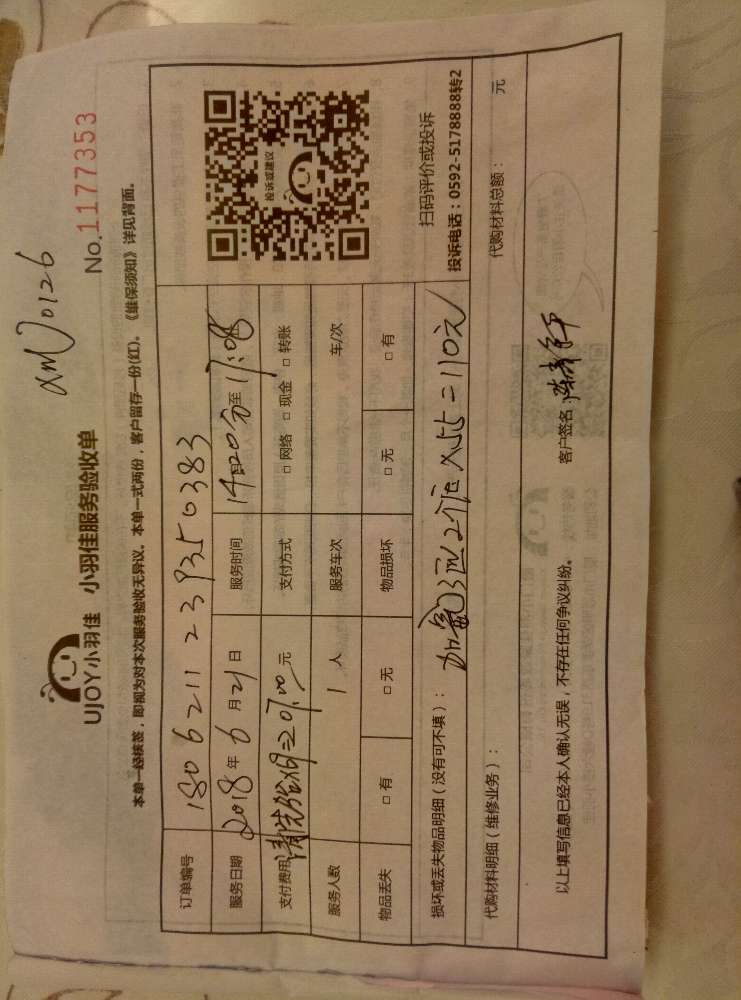 xm0126
UJOY小羽佳 小羽佳服务验收单
No.1177353
本单一经核签，即视为对本次服务验收无异议。本单一式两份，客户留存一份(红)。《维保须知》详见背面。
订单编号 180621123935 0383
服务日期 2018年6月21日 服务时间 14时20分至17:08
支付费用 207.00元 支付方式 □网络 □现金 □转账
服务人数 1人 服务车次 车/次
物品丢失 □有 □无 物品损坏 □无 □有
损坏或丢失物品明细（没有可不填）： 加氟 2个 X55=110元
投诉或建议
扫码评价或投诉
投诉电话：0592-5178888转2
代购材料明细（维修业务）： 代购材料总额： 元
以上填写信息已经本人确认无误，不存在任何争议纠纷。 客户签名：